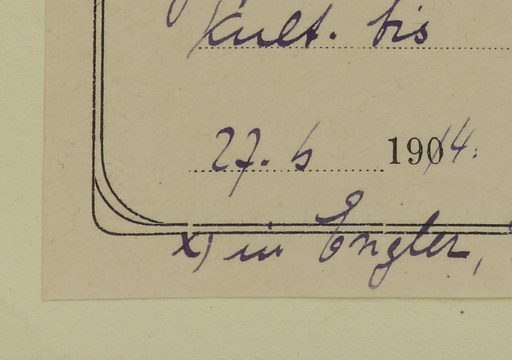 kult. bis
27. 6 1904.
x) in Engler,